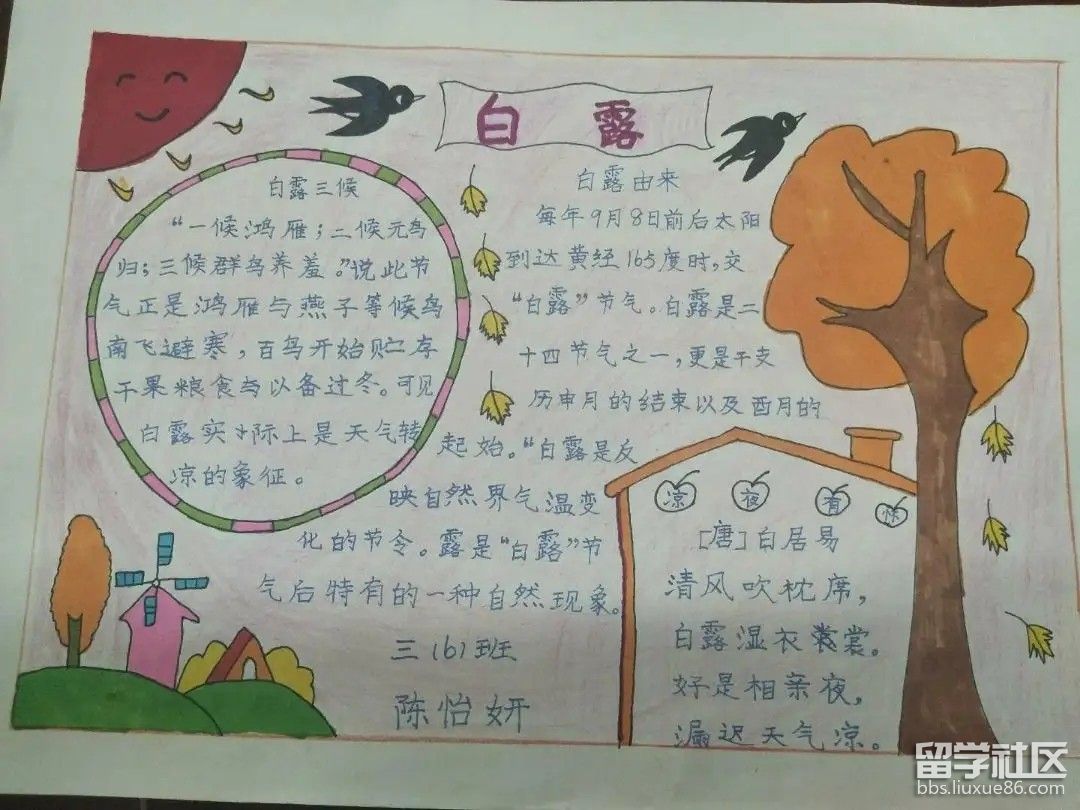 白露
白露三候
“一候鸿雁；二候元鸟
归；三候群鸟养羞。”说此节
气正是鸿雁与燕子等候鸟
南飞避寒，百鸟开始贮存
干果粮食与以备过冬。可见
白露实际上是天气转
凉的象征。
白露由来
每年9月8日前后太阳
到达黄经165度时，交
“白露”节气。白露是二
十四节气之一，更是干支
历申月的结束以及酉月的
起始。“白露是反
映自然界气温变
化的节令。露是“白露”节
气后特有的一种自然现象。
三（6）班
陈怡妍
凉夜有怀
[唐]白居易
清风吹枕席，
白露湿衣裳。
好是相亲夜，
漏迟天气凉。
留学社区
bbs.liuxue86.com